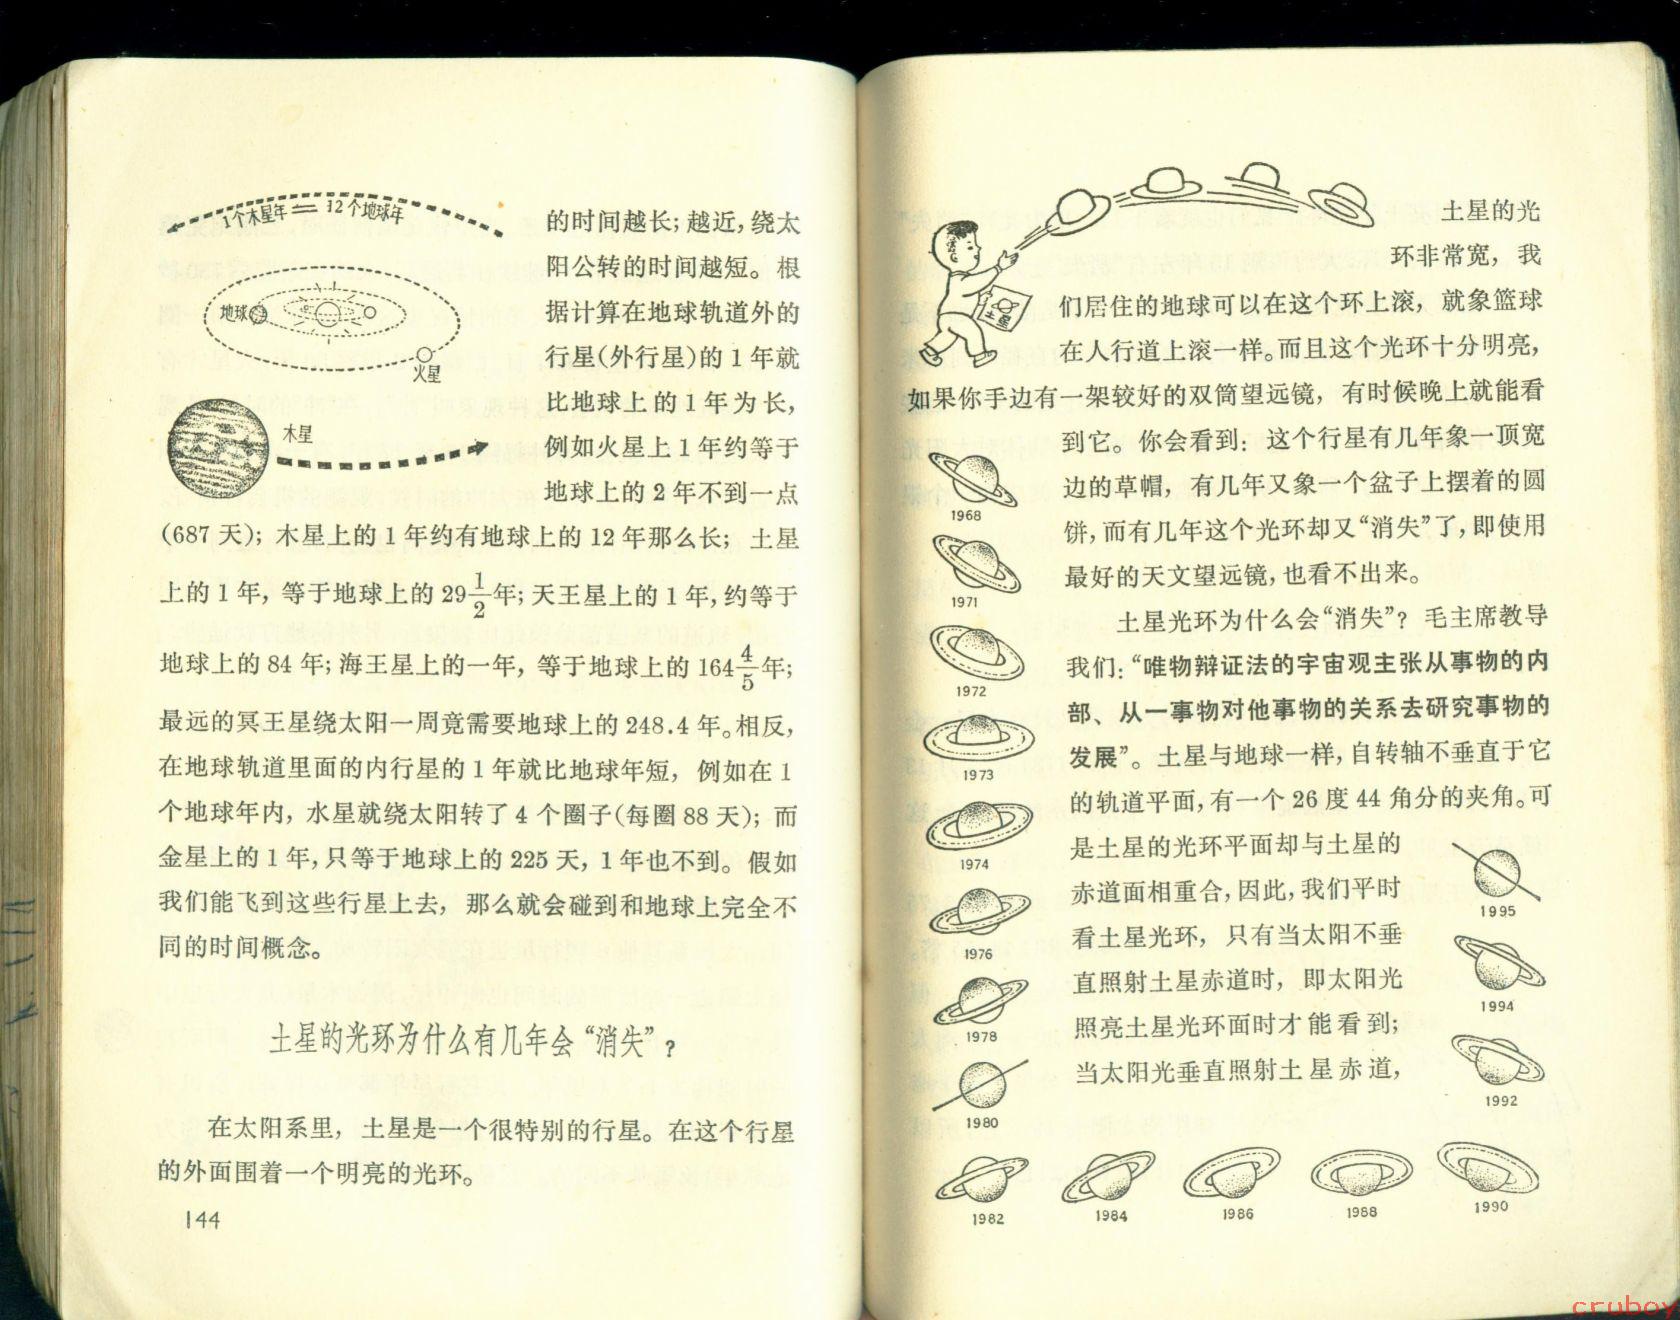 1个木星年=12个地球年
地球
火星
木星
的时间越长；越近，绕太
阳公转的时间越短。根
据计算在地球轨道外的
行星(外行星)的1年就
比地球上的1年为长，
例如火星上1年约等于
地球上的2年不到一点
(687天)；木星上的1年约有地球上的12年那么长；土星
上的1年，等于地球上的29 1/2年；天王星上的1年，约等于
地球上的84年；海王星上的一年，等于地球上的164 4/5年；
最远的冥王星绕太阳一周竟需要地球上的248.4年。相反，
在地球轨道里面的内行星的1年就比地球年短，例如在1
个地球年内，水星就绕太阳转了4个圈子(每圈88天)；而
金星上的1年，只等于地球上的225天，1年也不到。假如
我们能飞到这些行星上去，那么就会碰到和地球上完全不
同的时间概念。
土星的光环为什么有几年会“消失”？
在太阳系里，土星是一个很特别的行星。在这个行星
的外面围着一个明亮的光环。
144
土星
土星的光
环非常宽，我
们居住的地球可以在这个环上滚，就象篮球
在人行道上滚一样。而且这个光环十分明亮，
如果你手边有一架较好的双筒望远镜，有时候晚上就能看
到它。你会看到：这个行星有几年象一顶宽
边的草帽，有几年又象一个盆子上摆着的圆
饼，而有几年这个光环却又“消失”了，即使用
最好的天文望远镜，也看不出来。
土星光环为什么会“消失”？毛主席教导
我们：“唯物辩证法的宇宙观主张从事物的内
部、从一事物对他事物的关系去研究事物的
发展”。土星与地球一样，自转轴不垂直于它
的轨道平面，有一个26度44角分的夹角。可
是土星的光环平面却与土星的
赤道面相重合，因此，我们平时
看土星光环，只有当太阳不垂
直照射土星赤道时，即太阳光
照亮土星光环面时才能看到；
当太阳光垂直照射土星赤道，
1968
1971
1972
1973
1974
1976
1978
1980
1982
1984
1986
1988
1990
1992
1994
1995
cruboy